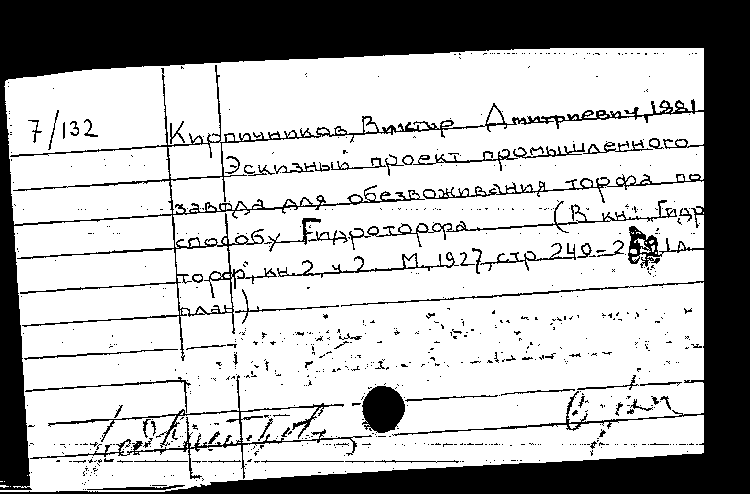 7/132
Кирпичников, Виктор Дмитриевич, 1881
Эскизный проект промышленного
завода для обезвоживания торфа по
способу Гидроторфа. (В кн.: "Гидр
торф", кн. 2, ч. 2. М., 1927, стр. 240-2 1 л.
план).